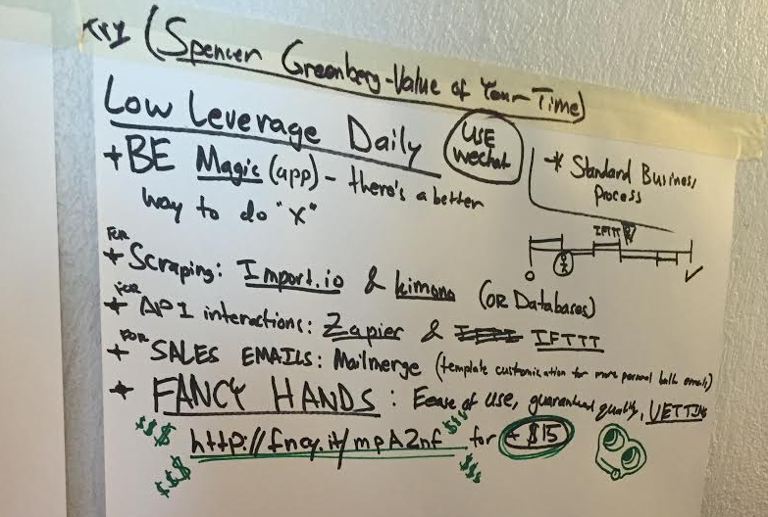 TRY (Spencer Greenberg-Value of Your Time)
Low Leverage Daily
USE wechat
+ BE Magic (app) - there's a better
way to do "X"
* Standard Business
Process
IFTTT
+ FOR Scraping: Import.io & kimono (OR Databases)
+ FOR API interactions: Zapier & IFTTT
+ FOR SALES EMAILS: Mailmerge (template customization for more personal bulk emails)
+ FANCY HANDS: Ease of use, guaranteed quality, VETTING
$$$ http://fncy.it/mpA2nf $$$ for + $15
$$$ $$$